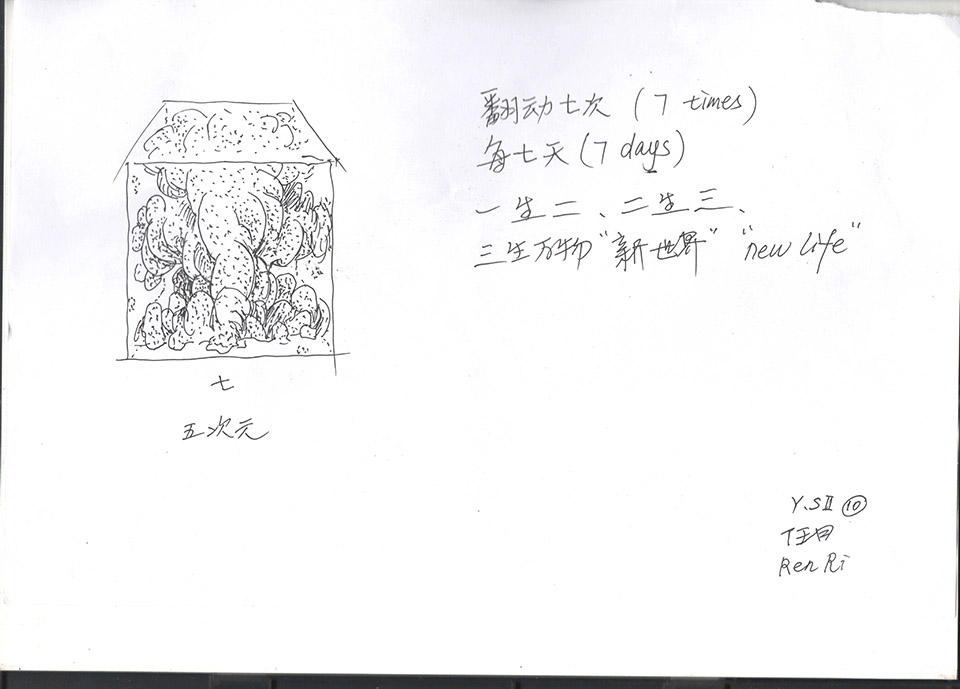 翻动七次 (7 times)
每七天 (7 days)
一生二、二生三、
三生万物"新世界" "new life"
七
五次元
Y.SⅡ ⑩
任日
Ren Ri